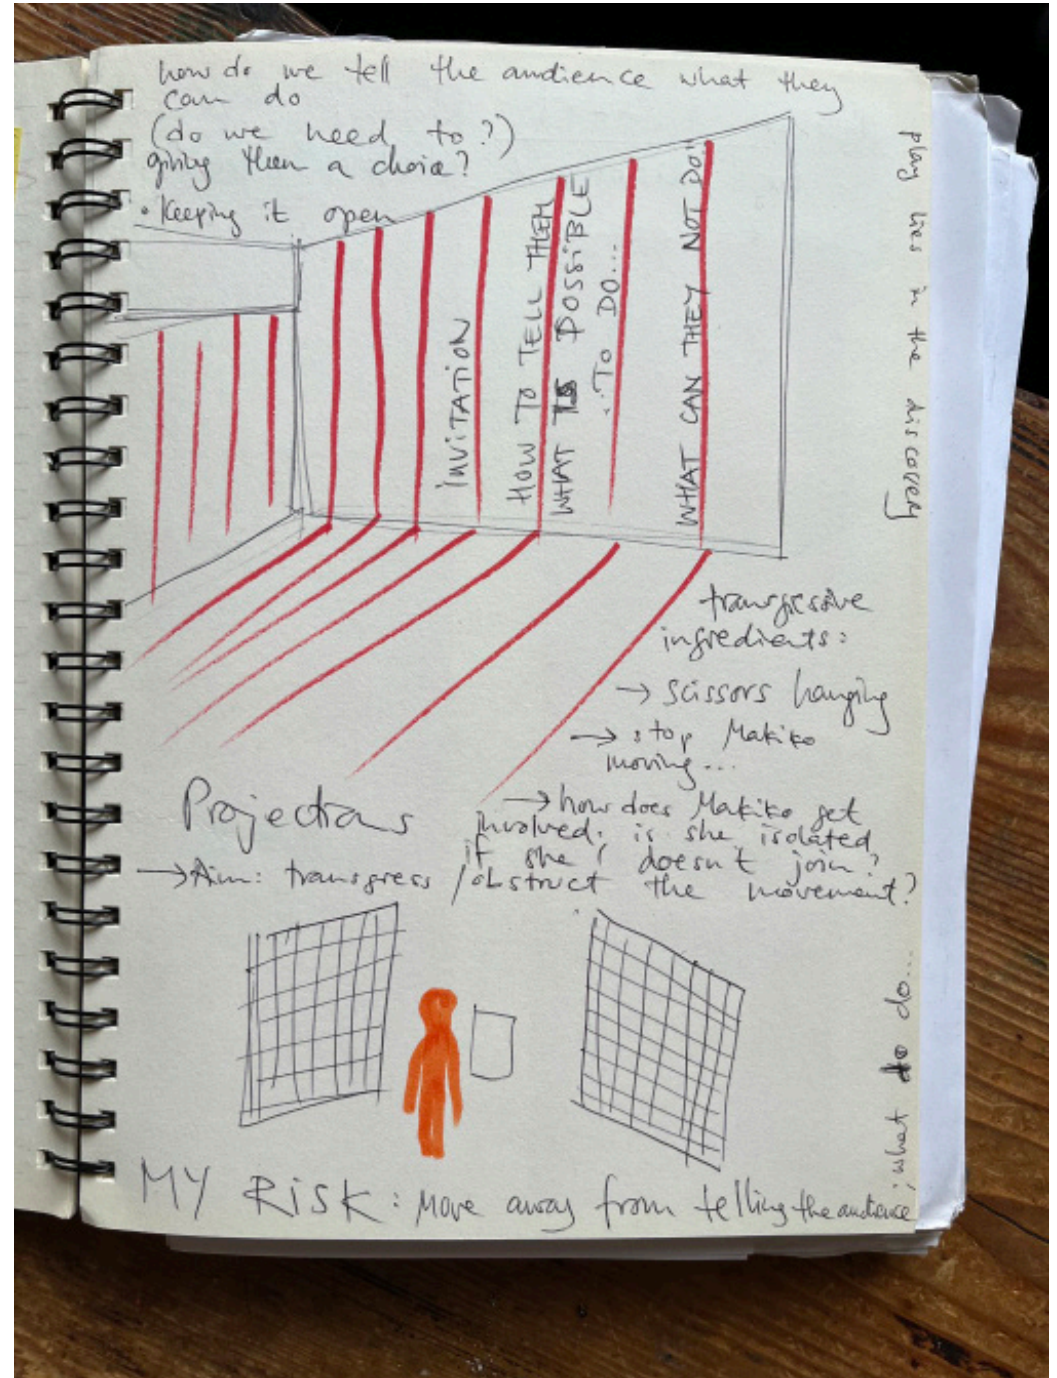 how do we tell the audience what they
can do
(do we need to?)
giving them a choice?
• Keeping it open
INVITATION
HOW TO TELL THEM
WHAT IS POSSIBLE
..TO DO...
WHAT CAN THEY NOT DO?
play lies in the discovery
transgressive
ingredients:
→ scissors hanging
→ stop Makiko
moving...
→ how does Makiko get
involved, is she isolated
if she doesn't join?
Projections
→ Aim: transgress / obstruct the movement?
MY RISK: Move away from telling the audience
; what to do...